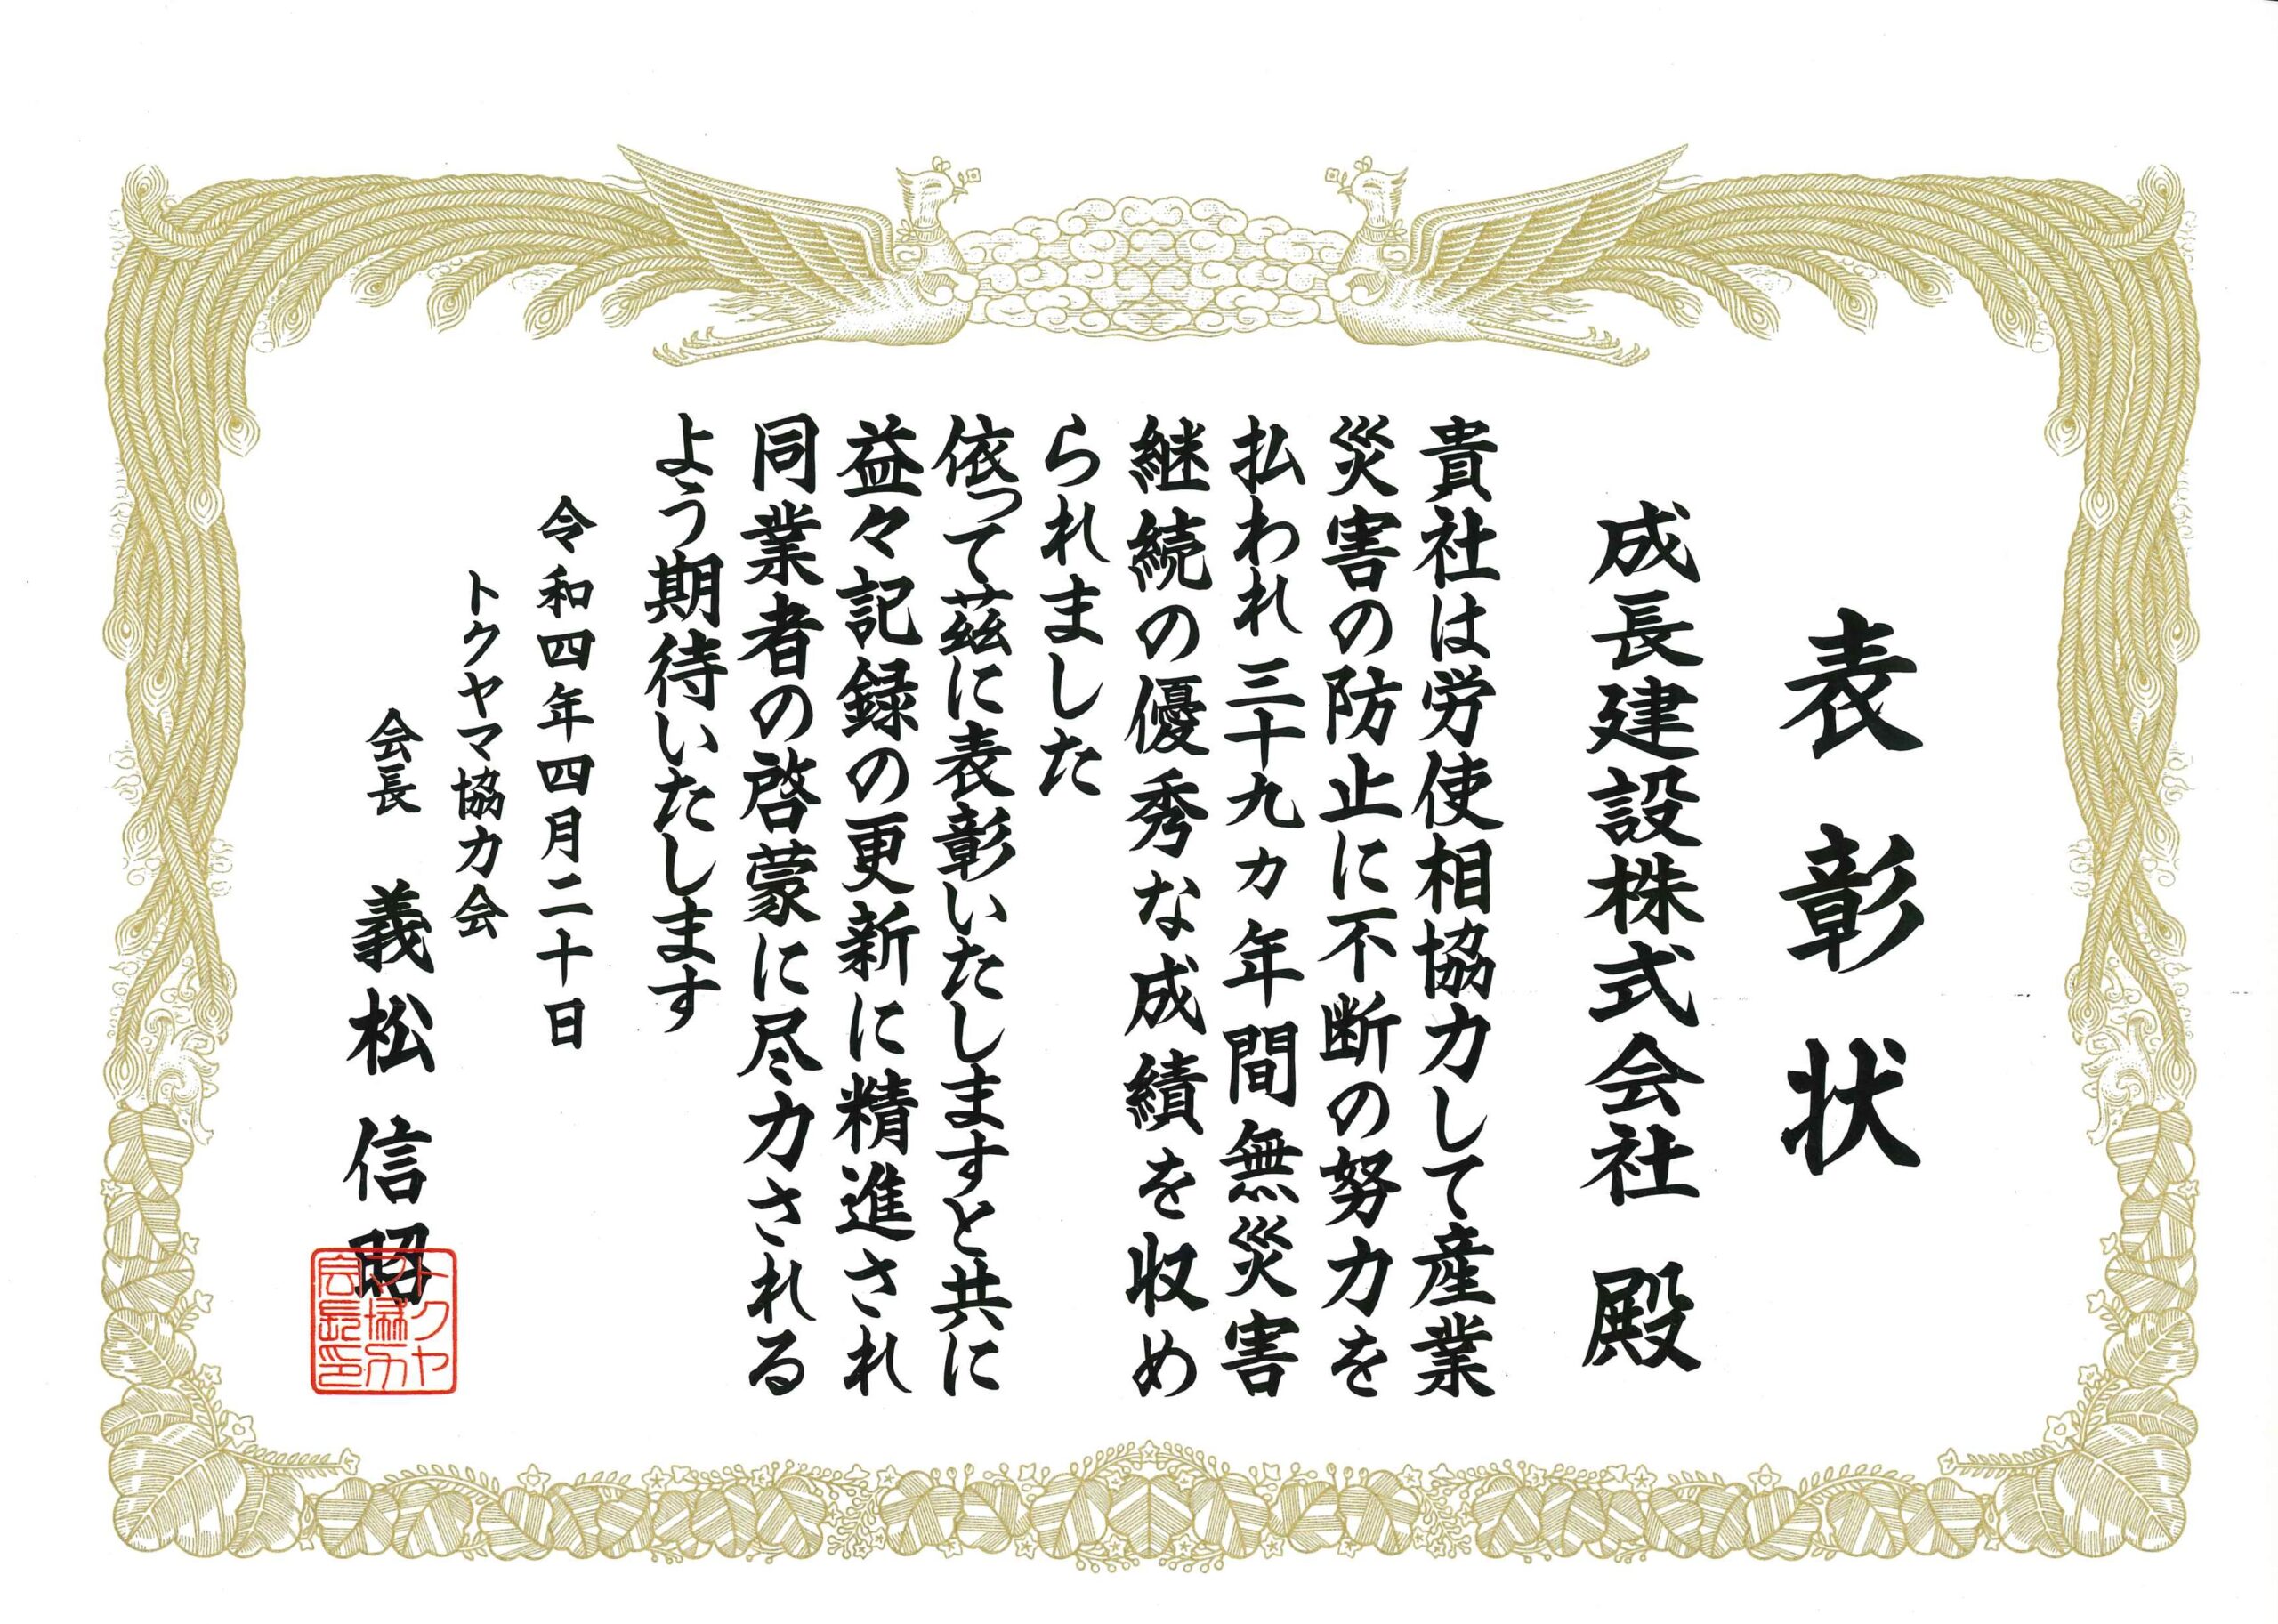 表彰状
成長建設株式会社 殿
貴社は労使相協力して産業
災害の防止に不断の努力を
払われ三十九ヵ年間無災害
継続の優秀な成績を収め
られました
依って茲に表彰いたしますと共に
益々記録の更新に精進され
同業者の啓蒙に尽力される
よう期待いたします
令和四年四月二十日
トクヤマ協力会
会長 義松信昭
トクヤ
マ協力
会長印